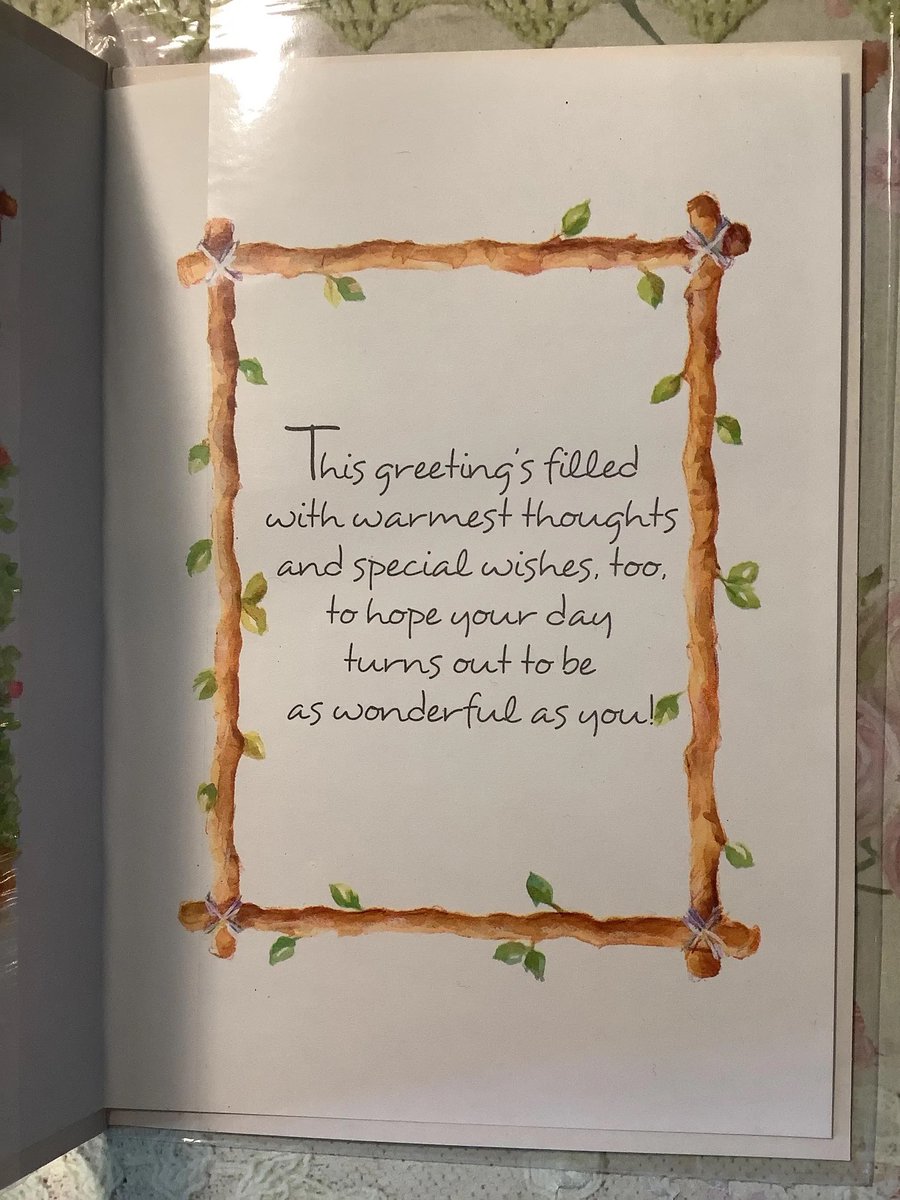 This greeting's filled
with warmest thoughts
and special wishes, too,
to hope your day
turns out to be
as wonderful as you!